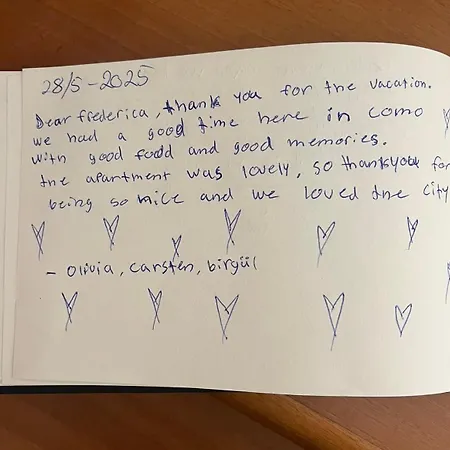 28/5-2025
Dear frederica, thank you for the vacation.
we had a good time here in como
with good food and good memories.
the apartment was lovely, so thankyou for
being so nice and we loved the city
- olivia, carsten, birgül